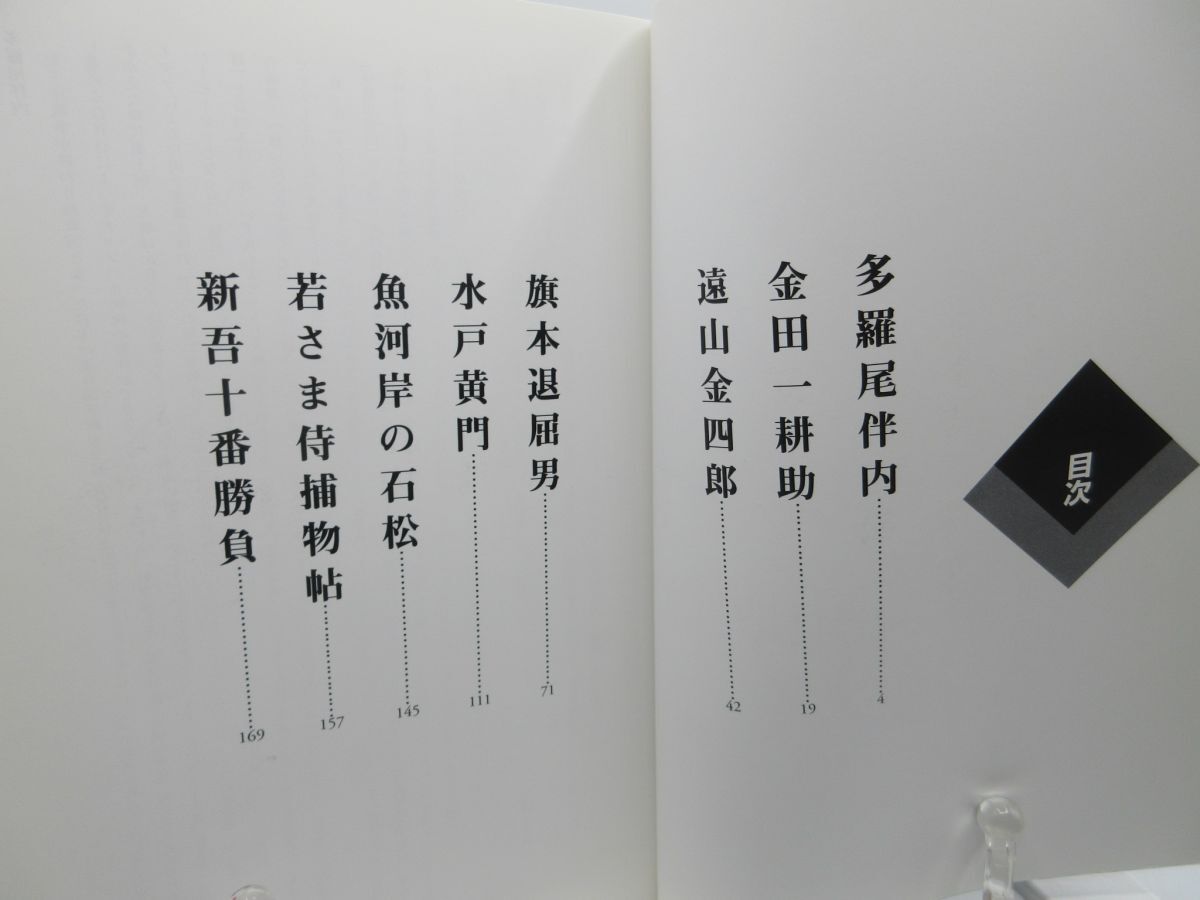 目次
多羅尾伴内……4
金田一耕助……19
遠山金四郎……42
旗本退屈男……71
水戸黄門……111
魚河岸の石松……145
若さま侍捕物帖……157
新吾十番勝負……169